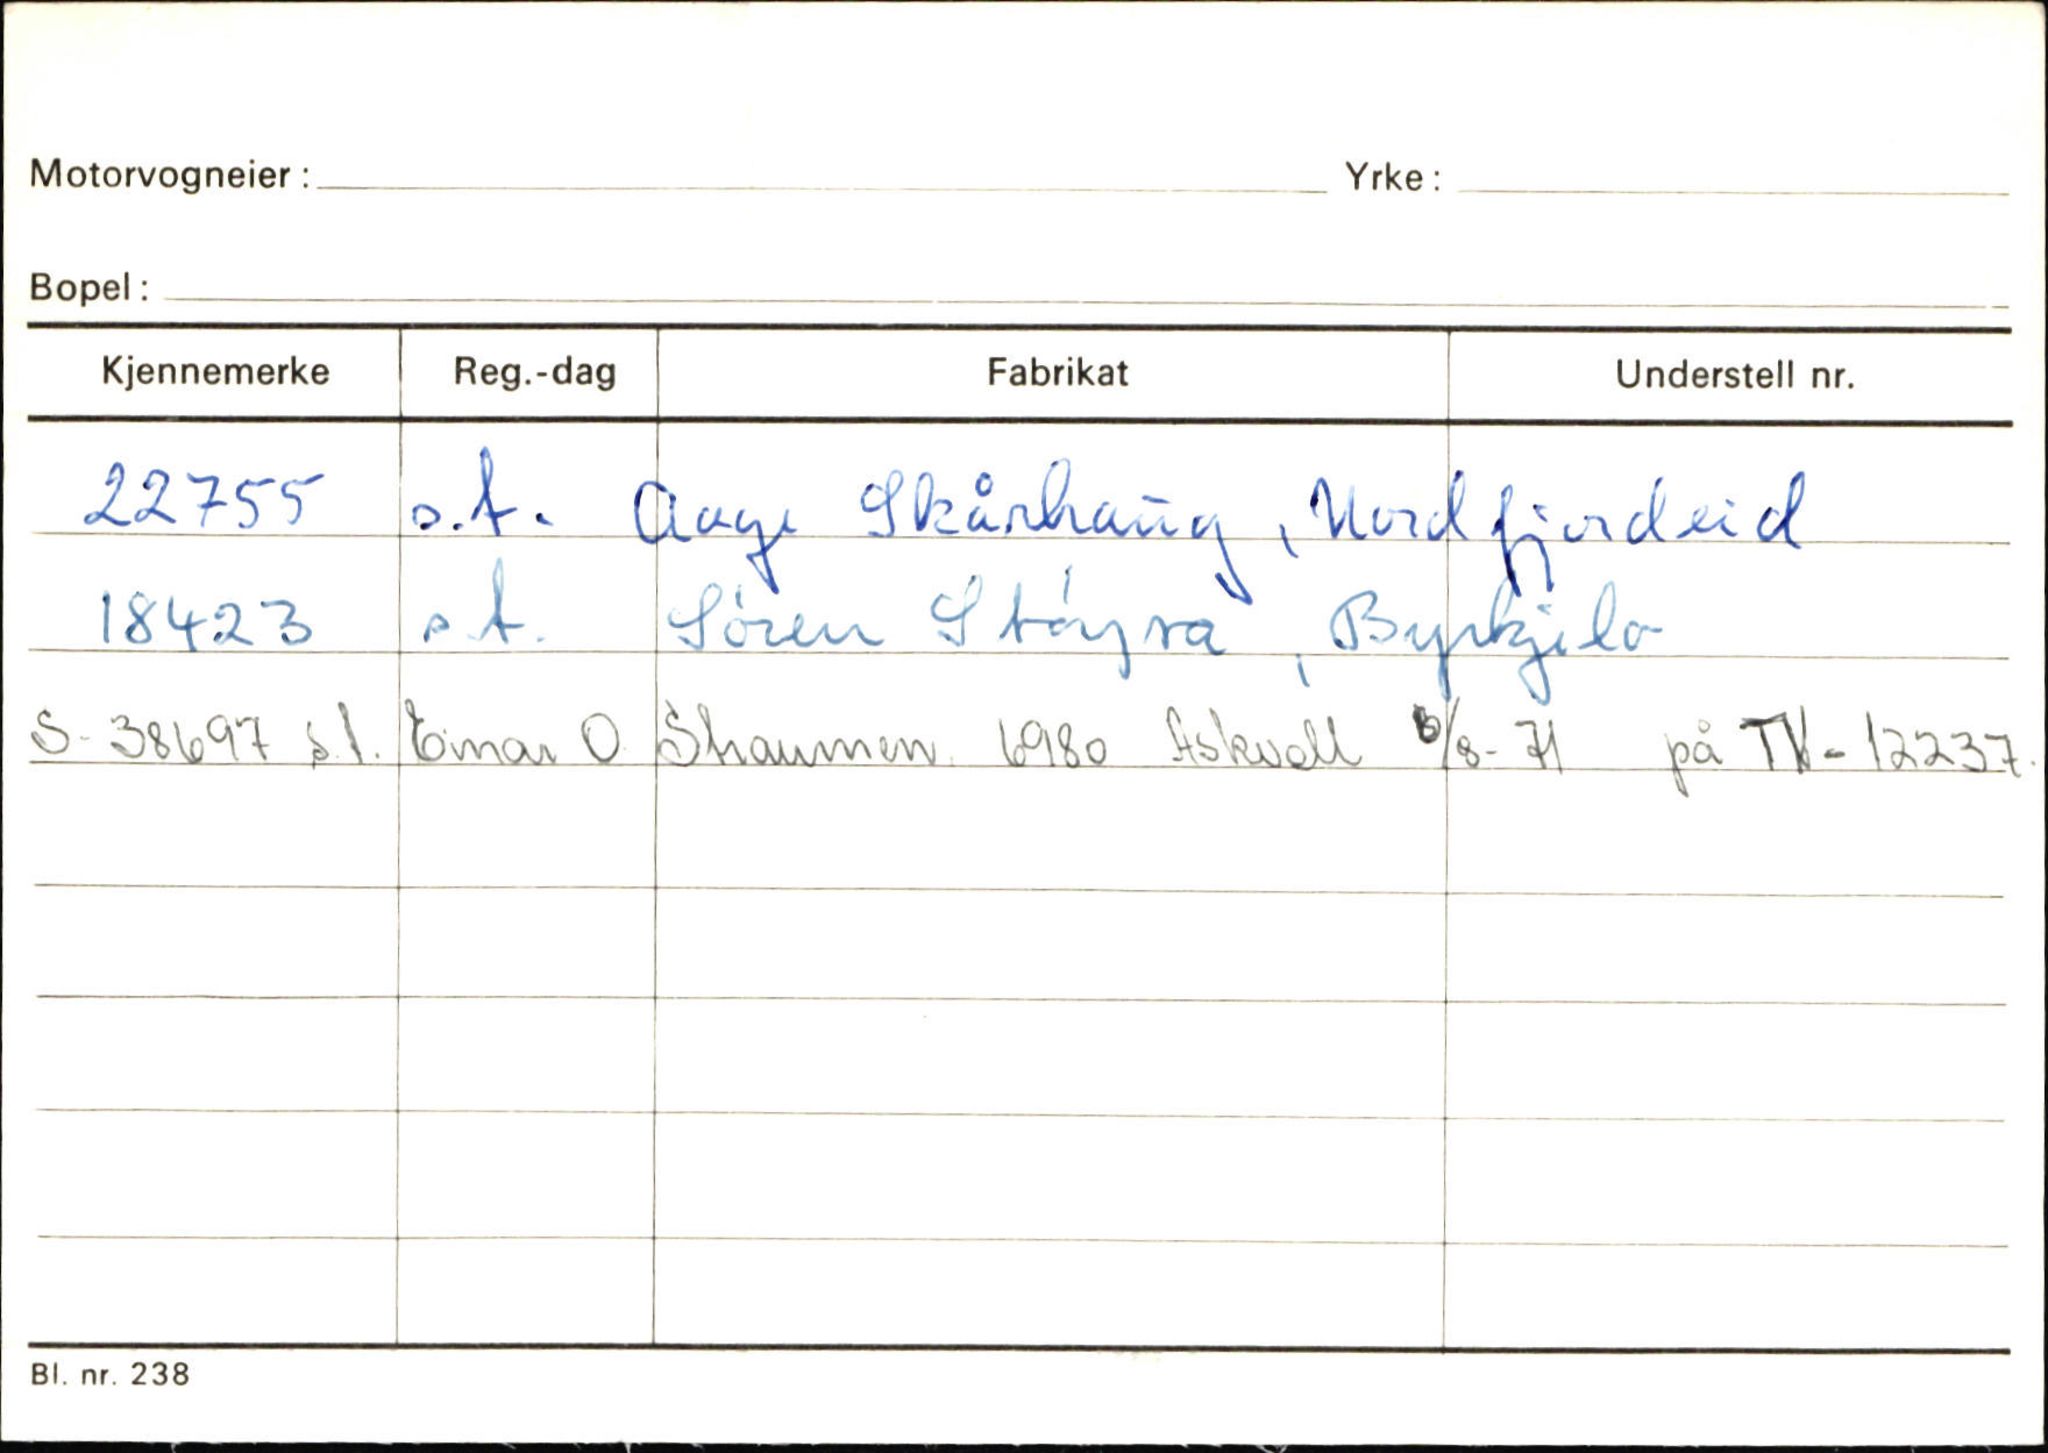 Motorvogneier: Yrke:
Bopel:
Kjennemerke Reg.-dag Fabrikat Understell nr.
22755 s.t. Aage Skårhaug, Nordfjordeid
18423 s.t. Sören Stöyva, Byrkjelo
S-38697 s.t. Einar O. 6980 Askvoll 6/8-71 på TV-12237.
Bl. nr. 238